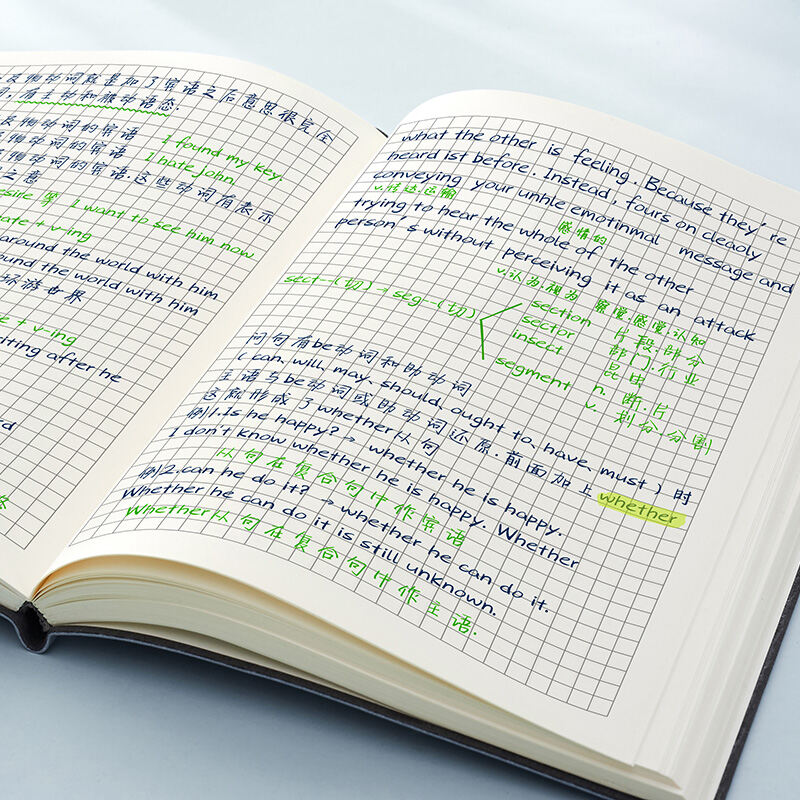 及物动词就是加了宾语之后意思很完全
有主动和被动语态.
及物动词的宾语
I found my key.
及物动词的宾语
I hate John.
物动词的宾语.这些动词有表示
之意
I want to see him now
ate + v-ing
around the world with him
ound the world with him
环游世界
e + v-ing
iting after he
what the other is feeling. Because they're
heard ist before. Instead, fours on cleaoly
conveying your unhle emotinmal message and
v.传达.运输
感情的
trying to hear the whole of the other
person's without perceiving it as an attack
v.认为.视为 察觉.感觉.认知
sect--(切) → seg--(切)
section 片段.部分
sector 部门.行业
insect 昆虫
segment n. 断.片
v. 划分.分割
问句有be动词和助动词
( can, will, may, should, ought to, have, must ) 时
主语与be动词或助动词还原.前面加上 whether
这就形成了whether从句
例1.Is he happy? → whether he is happy.
I don't know whether he is happy. Whether
从句在复合句中作宾语
例2.can he do it? → whether he can do it.
Whether he can do it is still unknown.
Whether从句在复合句中作主语.